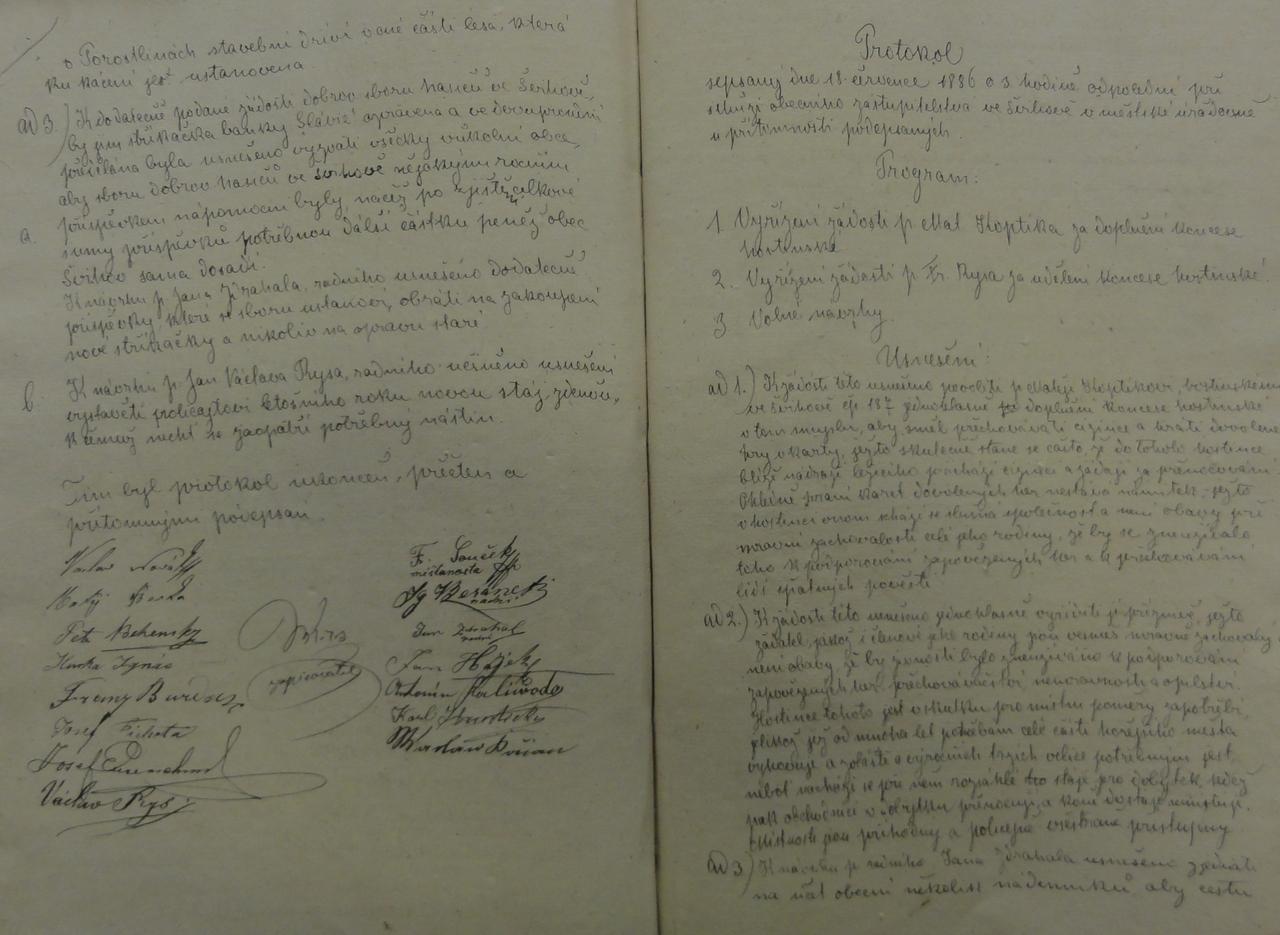 o Porostlinách stavební dříví v oné části lesa, která
ku kácení jest ustanovena.
ad 3.) K dodatečně podané žádosti dobrov. sboru hasičů ve Švihově,
by jim stříkačka banky Slávie opravena a ve
přečelána byla usnešeno vyzvati všecky vůkolní obce,
aby sboru dobrov. hasičů ve Švihově nějakým ročním
příspěvkem nápomocni byly, načež po zjištění celkové
sumy příspěvků potřebnou další částku peněz obec
Švihov sama dosadí.
a. K návrhu p. Jana Zdrahala, radního usnešeno dodatečně
příspěvky, které se sboru ustanoví, obrátí na zakoupení
nové stříkačky a nikoliv na opravu staré.
b. K návrhu p. Jan Václava Rysa, radního učiněno usnešení
vystavěti policajtovi letošního roku novou stáj zděnou,
k čemuž nechť se zaopatří potřebný nástin.
Tím byl protokol ukončen, přečten a
přítomnými podepsán.
Václav Novák
Matěj
Petr Behensky
Hurka Ignác
Josef Fichota
Josef
Václav Rys
zapisovatel
F. Souček
městanosta
Ig Beránek
radní
Jan Zdrahal
radní
Jan Hájek
Antonín Kalivoda
Karel
Protokol
sepsaný dne 18. července 1886 o 3. hodině odpolední při
schůzi obecního zastupitelstva ve Švihově v městské úřadovně
u přítomnosti podepsaných.
Program:
1. Vyřízení žádosti p. Mat. Koptíka za doplnění koncese
hostinské
2. Vyřízení žádosti p. Fr. Rysa za udělení koncese hostinské.
3. Volné návrhy.
Usnešení:
ad 1.) K žádosti této usnešeno povoliti p. Matěji Koptíkovi, hostinskému
ve Švihově čp. 187 jednohlasně doplnění koncese hostinské
v tom smyslu, aby směl přechovávati cizince a hráti dovolené
hry v karty, ježto skutečně stane se často, že do tohoto hostince
blíže nádraží ležícího přichází cizinci a žádají za přenocování.
Ohledně hraní karet dovolených her nestává námitek, ježto
v hostinci onom schází se slušná společnost a není obavy při
mravní zachovalosti celé jeho rodiny, že by se zneužívalo
toho k podporování zapovězených her a k přechovávání
lidí špatných pověstí.
ad 2.) K žádosti této usnešeno jednohlasně vyříditi ji příznivě, ježto
žadatel, jakož i členové jeho rodiny jsou vesměs mravně zachovalý,
není obavy, že by živnosti bylo zneužíváno k podporování
zapovězených her, přechovávačství, nemravnosti a opilství.
Hostince tohoto jest v skutku pro místní poměry zapotřebí,
jelikož již od mnoha let potřebám celé části hořejšího města
vyhovuje a zvláště o výročních trzích velice potřebným jest,
neboť nachází se při něm rozsáhlé stáje pro dobytek, kdež
pak obchodníci s dobytkem přenocují a koně dostaje umístují.
Místnosti jsou příhodny a policejně všestraně přístupny.
ad 3.) K návrhu p. radního Jana Zdrahala usnešeno zjednati
na účet obecní několik nádenníků, aby cestu